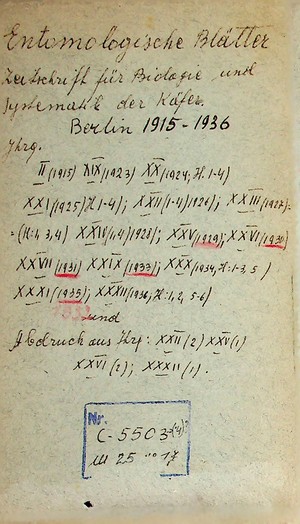 Entomologische Blätter
Zeitschrift für Biologie und
Systematik der Käfer.
Berlin 1915-1936
Jhrg.
II (1915) XIX (1923) XX (1924; H. 1-4)
XXI (1925) H. 1-4); XXII (1-4) 1926); XXIII (1927=
=(H: 1, 3, 4) XXIV (1, 4) 1928); XXV (1929); XXVI (1930)
XXVII (1931) XXIX (1933); XXX (1934, H: 1-3, 5)
XXXI (1935); XXXII (1936; H: 1, 2, 5-6)
und
Abdruck aus Jhrg: XXII (2) XXV (1)
XXVI (2); XXXII (1).
Nr.
C-5503